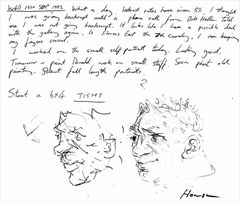 What a day. Interest rates have risen 5%. I thought
I was going backward until a phone call from Bob Heller told
me I was not going backward. It looks like I have a possible deal
with the gallery again. Is Flowers East the 7th Cavalry. I am keeping
my fingers crossed.
I worked on the small self portrait today. Looking good.
Tomorrow - paint Donald, work on small stuff. Sean paint old
painting. Start full length portraits
?
Start a 6x4 TISMY
Howson